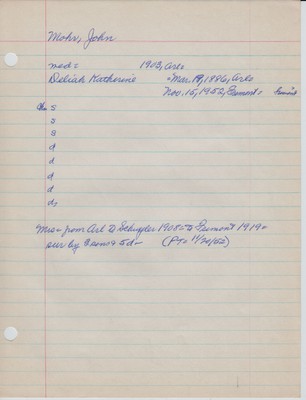 Mohr, John
med = 1903, Arlo
Deliak Katherine °Mar. 19, 1886, Arlo
Nov. 15, 1952, Fremont =
Ch s
s
s
d
d
d
d
d
d,
Mrs - from Arl to Schuyler 1908 - to Fremont 1919 -
sur by 3 sons + 5 d - (PT = 11/20/52)